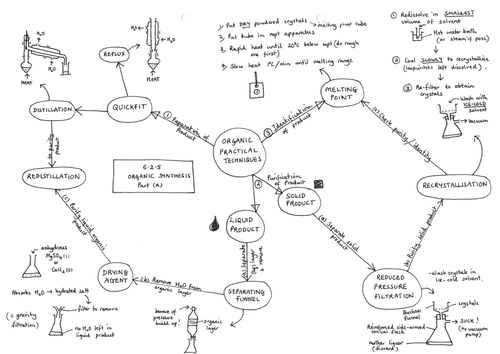 1. Put DRY powdered crystals → melting point tube
2. Put tube in mpt apparatus
3. Rapid heat until 20°C below mpt (do rough one first)
4. Slow heat 1°C/min until melting range
① Redissolve in SMALLEST
volume of solvent
Hot water bath
(or steam if poss)
② Cool SLOWLY to recrystallise
(impurities left dissolved).
③ Re-filter to obtain
crystals
Wash with
ICE-COLD
solvent
→ Vacuum
H₂O
H₂O
HEAT
H₂O
H₂O
HEAT
REFLUX
DISTILLATION
QUICKFIT
① Preparation of
product
③ Identification
of product
MELTING
POINT
(c) Check purity/identity
ORGANIC
PRACTICAL
TECHNIQUES
to purify
product
6.2.5
ORGANIC SYNTHESIS
Part (a)
② Purification
of Product
SOLID
PRODUCT
REDISTILLATION
RECRYSTALLISATION
LIQUID
PRODUCT
(a) Separate solid
product
(b) Purify solid product
(c) Purify liquid organic
(a) Separate
layers
anhydrous
MgSO₄(s)
or
CaCl₂(s)
DRYING
AGENT
(b) Remove H₂O from
organic layer
SEPARATING
FUNNEL
REDUCED
PRESSURE
FILTRATION
Wash crystals in
ice-cold solvent.
Absorbs H₂O → hydrated salt
(= gravity
filtration)
filter to remove
no H₂O left in
liquid product
beware of
pressure
build up!
organic
layer
Buchner
funnel
crystals
Reinforced side-armed
conical flask
SUCK!
(to vacuum
pump)
mother liquor
(discard)